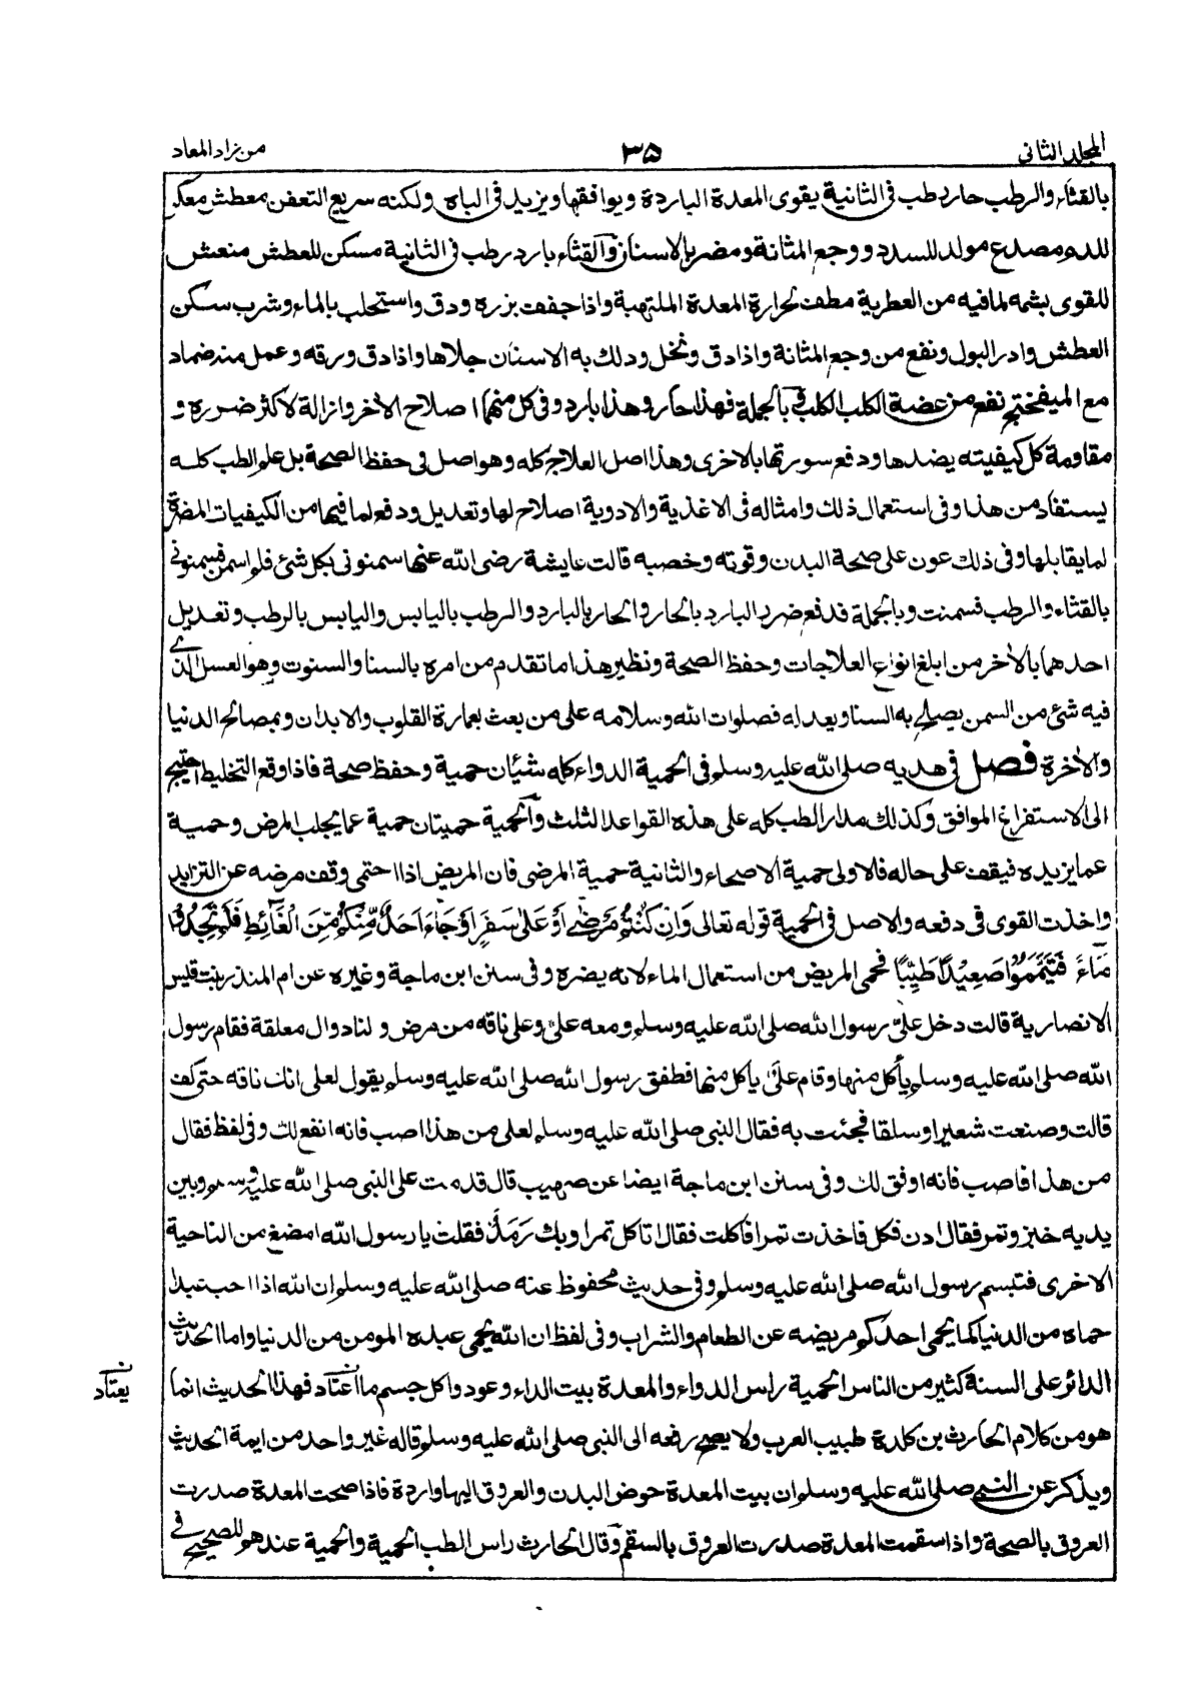 المجلد الثانی ۳۵ من زاد المعاد
بالقثاء والرطب حار رطب فی الثانیة یقوی المعدة الباردة ویوافقها ویزید فی الباه ولکنه سریع التعفن معطش معکر
للدم مصدع مولد للسدد ووجع المثانة ومضر بالاسنان والقثاء بارد رطب فی الثانیة مسکن للعطش منعش
للقوی بشمه لما فیه من العطریة مطف لحرارة المعدة الملتهبة واذا جفف بزره ودق واستحلب بالماء وشرب سکن
العطش وادر البول ونفع من وجع المثانة واذا دق ونخل ودلك به الاسنان جلاها واذا دق ورقه وعمل منه ضماد
مع المیفختج نفع من عضة الکلب الکلب وبالجملة فهذا حار وهذا بارد وفی کل منهما اصلاح الاخر وازالة لاکثر ضرره و
مقاومة کل کیفیته بضدها ودفع سورتها بالاخری وهذا اصل العلاج کله وهو اصل فی حفظ الصحة بل علم الطب کله
یستفاد من هذا وفی استعمال ذلك وامثاله فی الاغذیة والادویة اصلاح لها وتعدیل ودفع لما فیها من الکیفیات المضرة
لما یقابلها وفی ذلك عون علی صحة البدن وقوته وخصبه قالت عایشة رضی الله عنها سمنونی بکل شئ فلم اسمن فسمنونی
بالقثاء والرطب فسمنت وبالجملة فدفع ضرر البارد بالحار والحار بالبارد والرطب بالیابس والیابس بالرطب وتعدیل
احدهما بالاخر من ابلغ انواع العلاجات وحفظ الصحة ونظیر هذا ما تقدم من امره بالسنا والسنوت وهو العسل الذی
فیه شئ من السمن یصلح به السنا ویعدله فصلوات الله وسلامه علی من بعث بعمارة القلوب والابدان وبمصالح الدنیا
والاخرة فصل فی هدیه صلی الله علیه وسلم فی الحمیة الدواء کله شیئان حمیة وحفظ صحة فاذا وقع التخلیط احتیج
الی الاستفراغ الموافق وکذلك مدار الطب کله علی هذه القواعد الثلث والحمیة حمیتان حمیة عما یجلب المرض وحمیة
عما یزیده فیقف علی حاله فالاولی حمیة الاصحاء والثانیة حمیة المرضی فان المریض اذا احتمی وقف مرضه عن التزاید
واخذت القوی فی دفعه والاصل فی الحمیة قوله تعالی وَاِنْ كُنْتُمْ مَرْضٰى اَوْ عَلٰى سَفَرٍ اَوْ جَاءَ اَحَدٌ مِّنْكُمْ مِّنَ الْغَائِطِ فَلَمْ تَجِدُوْا
مَاءً فَتَيَمَّمُوْا صَعِيْدًا طَيِّبًا فحمی المریض من استعمال الماء لانه یضره وفی سنن ابن ماجة وغیره عن ام المنذر بنت قیس
الانصاریة قالت دخل علیَّ رسول الله صلی الله علیه وسلم ومعه علیٌّ وعلی ناقه من مرض ولنا دوال معلقة فقام رسول
الله صلی الله علیه وسلم یأکل منها وقام علیٌّ یاکل منها فطفق رسول الله صلی الله علیه وسلم یقول لعلی انك ناقه حتی کف
قالت وصنعت شعیرا وسلقا فجئت به فقال النبی صلی الله علیه وسلم لعلی من هذا اصب فانه انفع لك وفی لفظ فقال
من هذا فاصب فانه اوفق لك وفی سنن ابن ماجة ایضا عن صهیب قال قدمت علی النبی صلی الله علیه وسلم وبین
یدیه خبز وتمر فقال ادن فکل فاخذت تمرا فاکلت فقال اتاکل تمرا وبك رَمَدٌ فقلت یا رسول الله امضغ من الناحیة
الاخری فتبسم رسول الله صلی الله علیه وسلم وفی حدیث محفوظ عنه صلی الله علیه وسلم ان الله اذا احب عبدا
حماه من الدنیا کما یحمی احدکم مریضه عن الطعام والشراب وفی لفظ ان الله یحمی عبده المومن من الدنیا واما الحدیث
الدائر علی السنة کثیر من الناس الحمیة راس الدواء والمعدة بیت الداء وعودوا کل جسم ما اعتاد فهذا الحدیث انما
یعتاد
هو من کلام الحارث بن کلدة طبیب العرب ولا یصح رفعه الی النبی صلی الله علیه وسلم قاله غیر واحد من ایمة الحدیث
ویذکر عن النبی صلی الله علیه وسلم ان بیت المعدة حوض البدن والعروق الیها واردة فاذا صحت المعدة صدرت
العروق بالصحة واذا سقمت المعدة صدرت العروق بالسقم وقال الحارث راس الطب الحمیة والحمیة عندهم للصحیح فی